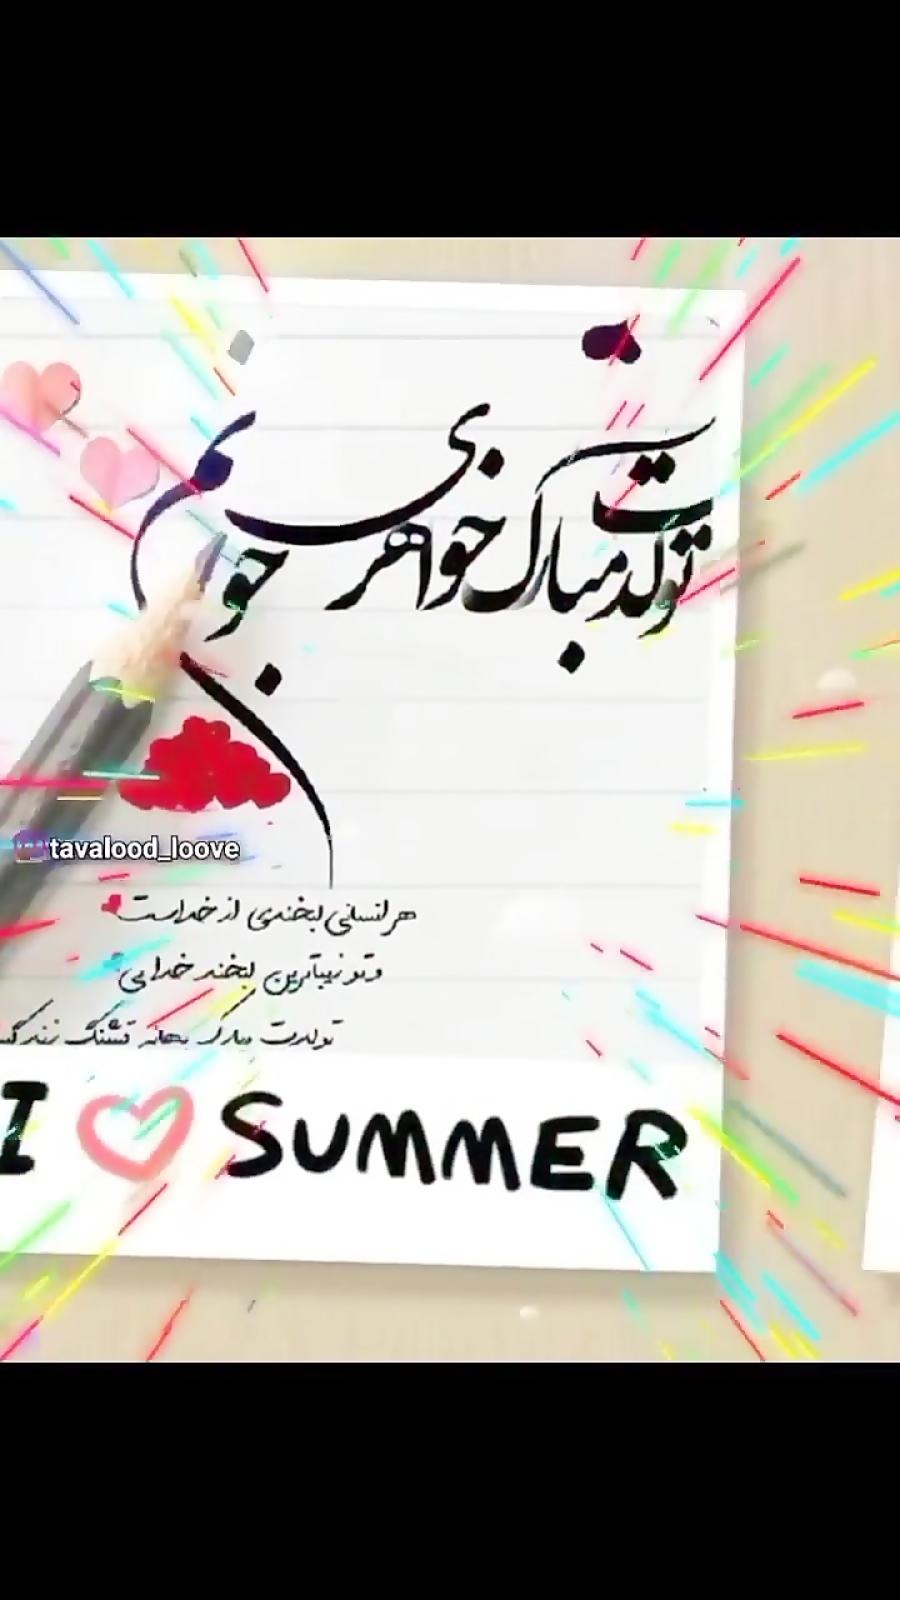 تولدت مبارک خواهری خوبم
tavalood_loove
هر انسانی لبخندی از خداست
و تو زیباترین لبخند خدایی
تولدت مبارک بهانه قشنگ
I SUMMER